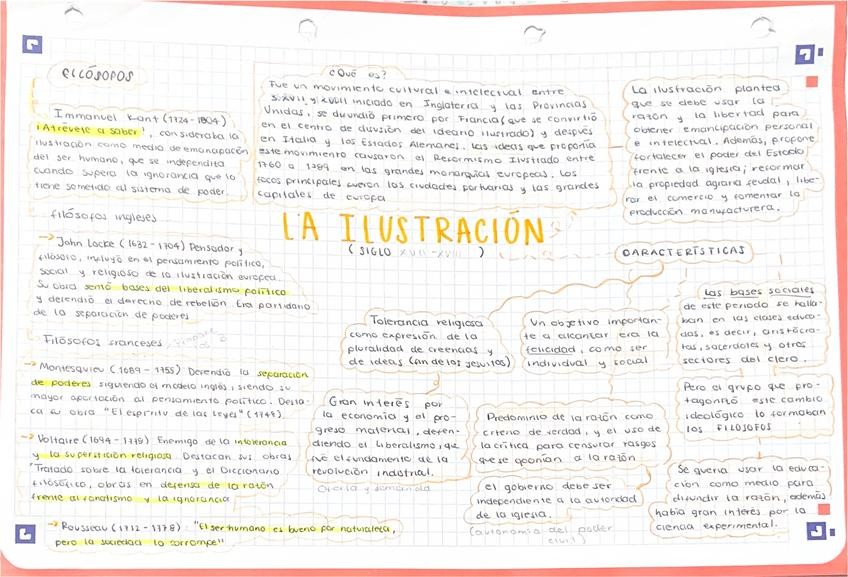 FILÓSOFOS
Immanuel Kant (1724 - 1804)
¡Atrévete a saber!, consideraba la
ilustración como medio de emancipación
del ser humano, que se independita
cuando supera la ignorancia que lo
tiene sometido al sistema de poder.
filósofos ingleses
→ John Locke (1632 - 1704) Pensador y
filósofo, influyó en el pensamiento político,
social y religioso de la ilustración europea.
Su obra sentó bases del liberalismo político
y defendió el derecho de rebelión Era partidario
de la separación de poderes
Filósofos franceses
→ Montesquieu (1689 - 1755) Defendió la separación
de poderes siguiendo el modelo inglés, siendo su
mayor aportación al pensamiento político. Desta-
ca su obra "El espíritu de las leyes" (1748).
→ Voltaire (1694 - 1778) Enemigo de la intolerancia
y la superstición religiosa. Destacan sus obras
"Tratado sobre la tolerancia y el Diccionario
filosófico, obras en defensa de la razón
frente al fanatismo y la ignorancia
→ Rousseau (1712 - 1778) "El ser humano es bueno por naturaleza,
pero la sociedad lo corrompe"
¿Qué es?
Fue un movimiento cultural e intelectual entre
S.XVII y XVIII iniciado en Inglaterra y las Provincias
Unidas, se difundió primero por Francia (que se convirtió
en el centro de difusión del ideario ilustrado) y después
en Italia y los Estados Alemanes. Las ideas que proponía
este movimiento causaron el Reformismo Ilustrado entre
1760 a 1789 en las grandes monarquías europeas. Los
focos principales fueron las ciudades portuarias y las grandes
capitales de europa
La ilustración plantea
que se debe usar la
razón y la libertad para
obtener emancipación personal
e intelectual. Además, propone
fortalecer el poder del Estado
frente a la iglesia; reformar
la propiedad agraria feudal, libe-
rar el comercio y fomentar la
producción manufacturera.
LA ILUSTRACIÓN
(SIGLO XVII-XVIII)
CARACTERÍSTICAS
Tolerancia religiosa
como expresión de la
pluralidad de creencias y
de ideas (fin de los jesuitas)
Un objetivo importan-
te a alcanzar era la
felicidad, como ser
individual y social
Las bases sociales
de este periodo se halla-
ban en las clases educa-
das, es decir, aristócra-
tas, sacerdotes y otros
sectores del clero.
Gran interés por
la economía y el pro-
greso material, defen-
diendo el liberalismo, que
fue el fundamento de la
revolución industrial.
Oferta y demanda
Predominio de la razón como
criterio de verdad, y el uso de
la crítica para censurar rasgos
que se oponían a la razón
el gobierno debe ser
independiente a la autoridad
de la iglesia.
(autonomía del poder
civil)
Pero el grupo que pro-
tagonizó este cambio
ideológico lo formaban
los FILÓSOFOS
Se quería usar la educa-
ción como medio para
difundir la razón, además
había gran interés por la
ciencia experimental.